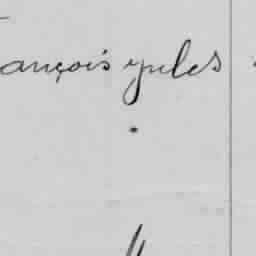 ançois yules